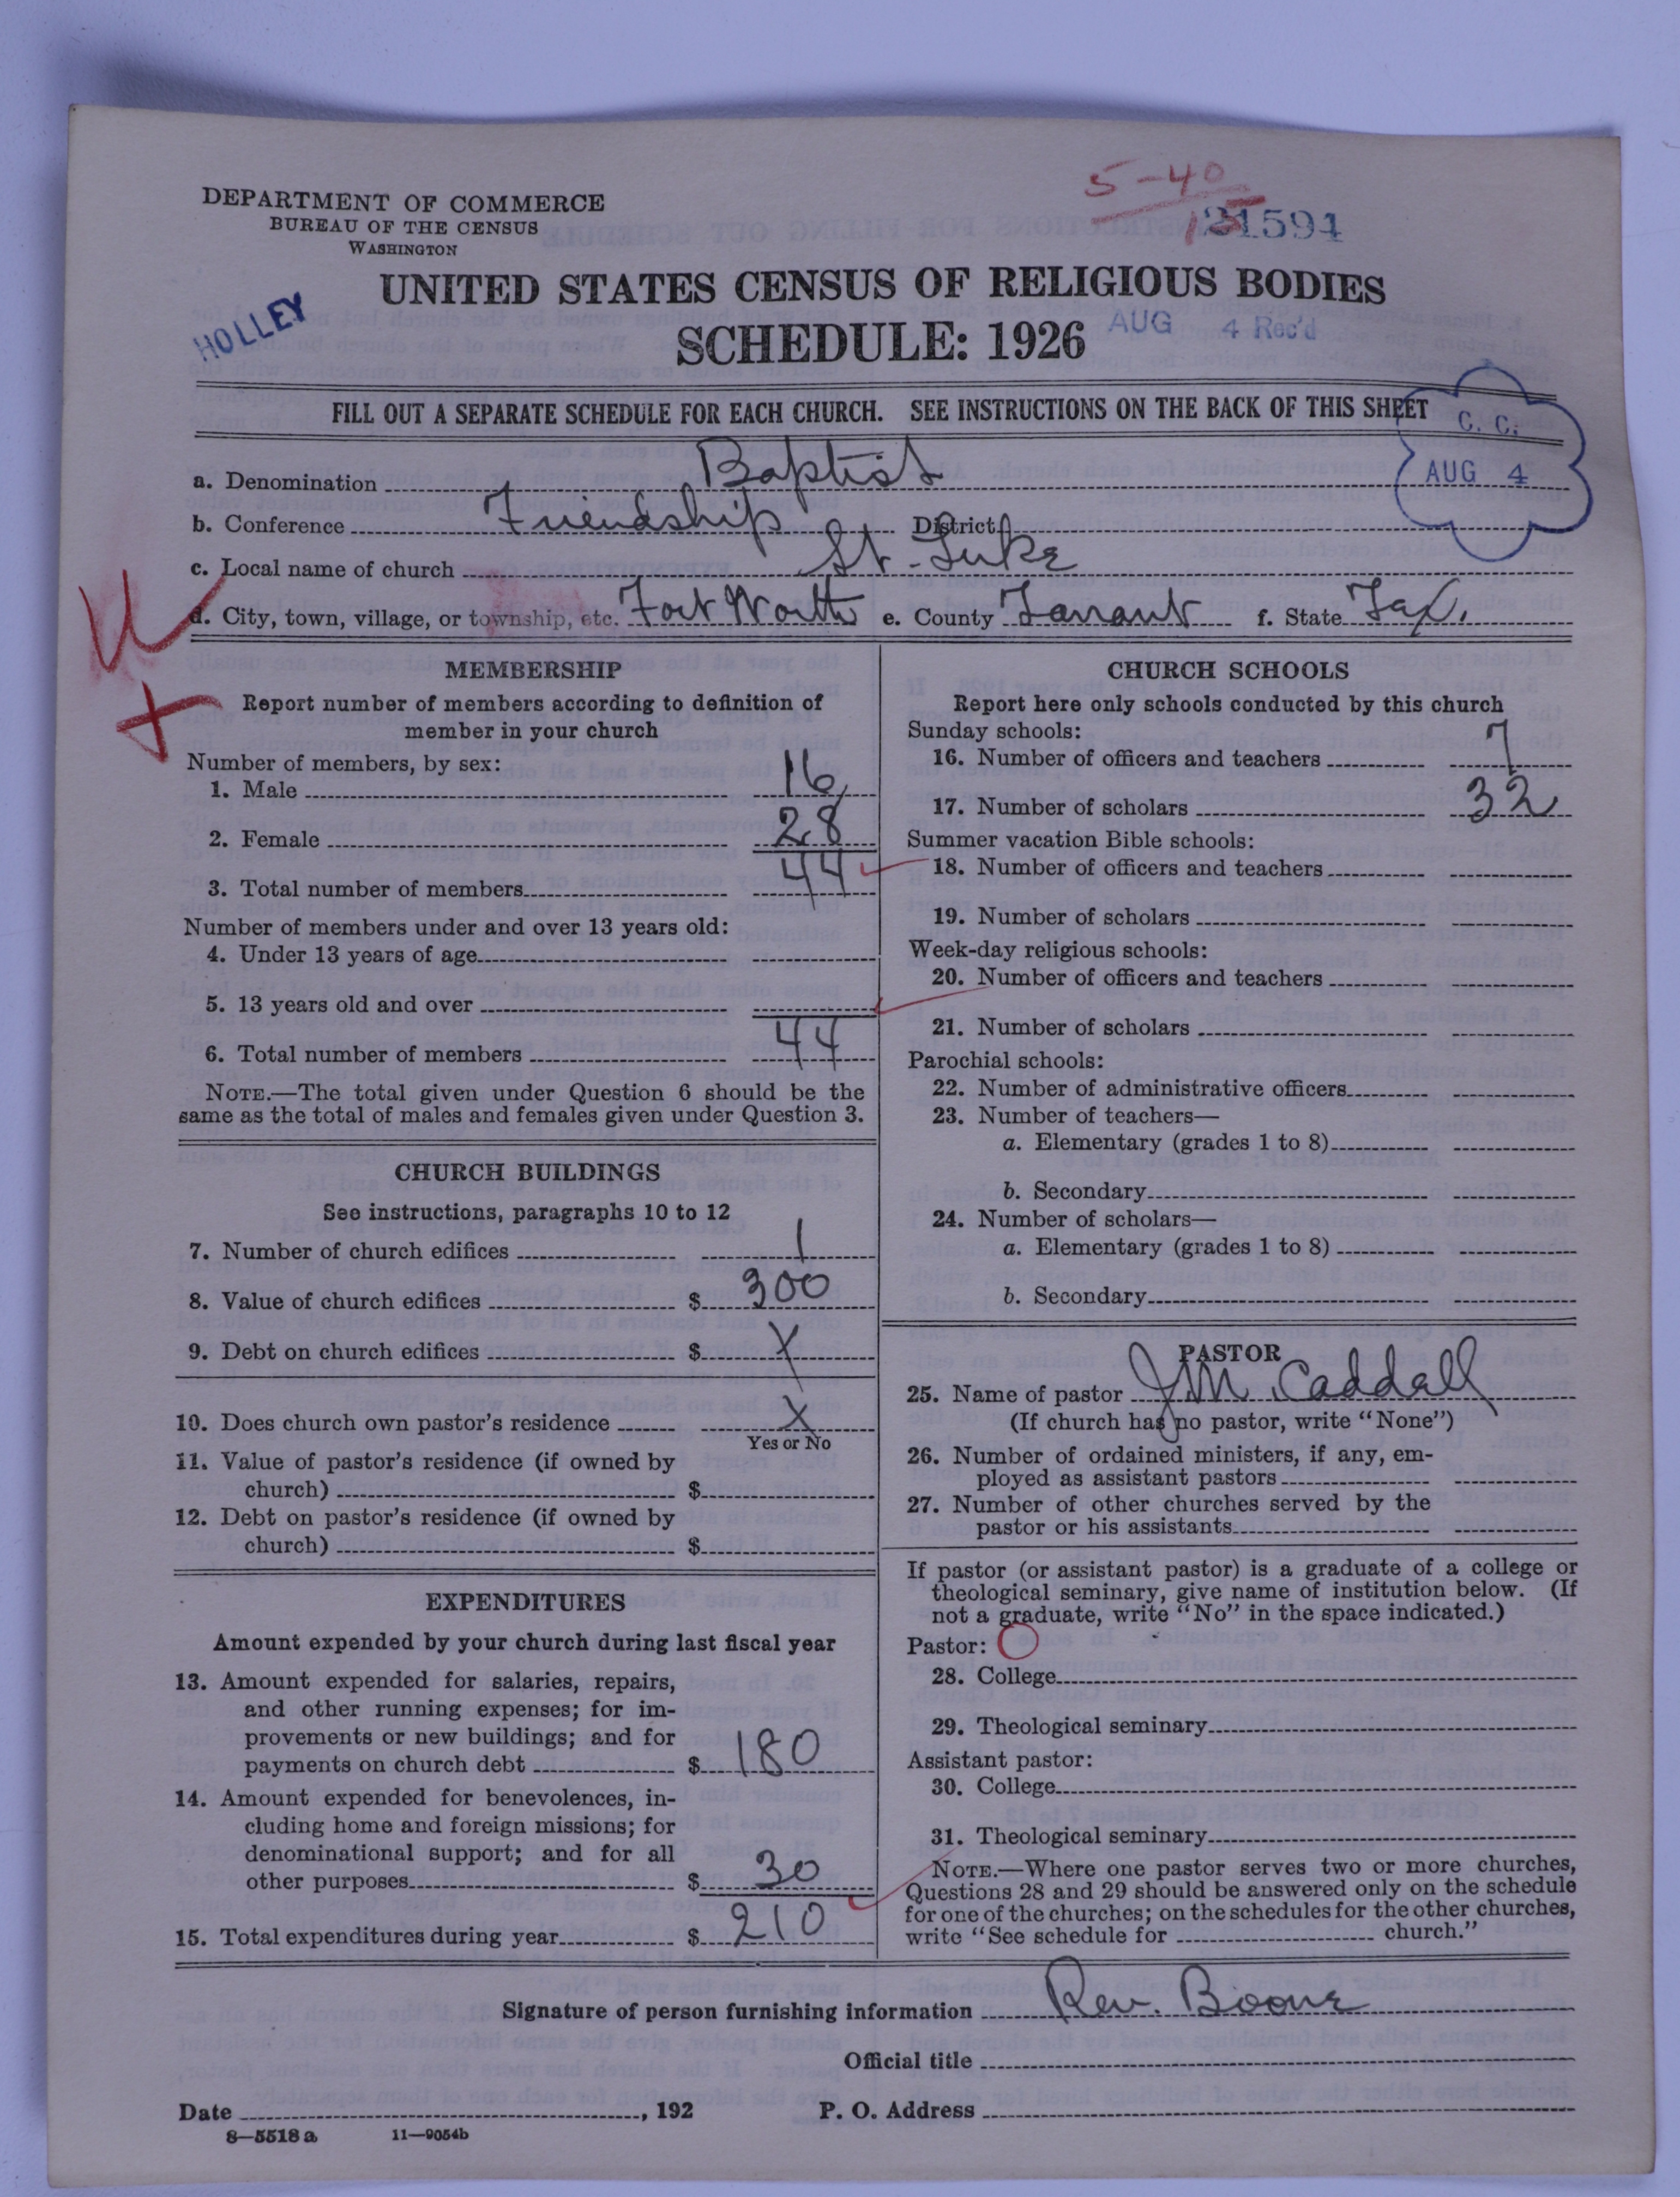 5-40
DEPARTMENT OF COMMERCE
BUREAU OF THE CENSUS
WASHINGTON
1594
UNITED STATES CENSUS OF RELIGIOUS BODIES
HOLLEY
SCHEDULE: 1926
AUG 4 Rec'd
FILL OUT A SEPARATE SCHEDULE FOR EACH CHURCH. SEE INSTRUCTIONS ON THE BACK OF THIS SHEET
C. C.
AUG 4
a. Denomination Baptist
b. Conference Friendship District
c. Local name of church St. Luke
d. City, town, village, or township, etc. Fort Worth e. County Tarrant f. State Tex.
MEMBERSHIP
Report number of members according to definition of
member in your church
Number of members, by sex:
1. Male 16
2. Female 28
3. Total number of members 44
Number of members under and over 13 years old:
4. Under 13 years of age
5. 13 years old and over
6. Total number of members 44
NOTE.—The total given under Question 6 should be the
same as the total of males and females given under Question 3.
CHURCH BUILDINGS
See instructions, paragraphs 10 to 12
7. Number of church edifices 1
8. Value of church edifices $ 300
9. Debt on church edifices $ X
10. Does church own pastor's residence X
Yes or No
11. Value of pastor's residence (if owned by
church) $
12. Debt on pastor's residence (if owned by
church) $
EXPENDITURES
Amount expended by your church during last fiscal year
13. Amount expended for salaries, repairs,
and other running expenses; for im-
provements or new buildings; and for
payments on church debt $ 180
14. Amount expended for benevolences, in-
cluding home and foreign missions; for
denominational support; and for all
other purposes $ 30
15. Total expenditures during year $ 210
CHURCH SCHOOLS
Report here only schools conducted by this church
Sunday schools:
16. Number of officers and teachers 7
17. Number of scholars 32
Summer vacation Bible schools:
18. Number of officers and teachers
19. Number of scholars
Week-day religious schools:
20. Number of officers and teachers
21. Number of scholars
Parochial schools:
22. Number of administrative officers
23. Number of teachers—
a. Elementary (grades 1 to 8)
b. Secondary
24. Number of scholars—
a. Elementary (grades 1 to 8)
b. Secondary
PASTOR
25. Name of pastor J M Caddall
(If church has no pastor, write "None")
26. Number of ordained ministers, if any, em-
ployed as assistant pastors
27. Number of other churches served by the
pastor or his assistants
If pastor (or assistant pastor) is a graduate of a college or
theological seminary, give name of institution below. (If
not a graduate, write "No" in the space indicated.)
Pastor:
28. College
29. Theological seminary
Assistant pastor:
30. College
31. Theological seminary
NOTE.—Where one pastor serves two or more churches,
Questions 28 and 29 should be answered only on the schedule
for one of the churches; on the schedules for the other churches,
write "See schedule for church."
Signature of person furnishing information Rev. Boone
Official title
Date , 192 P. O. Address
8—5518 a 11—9054b